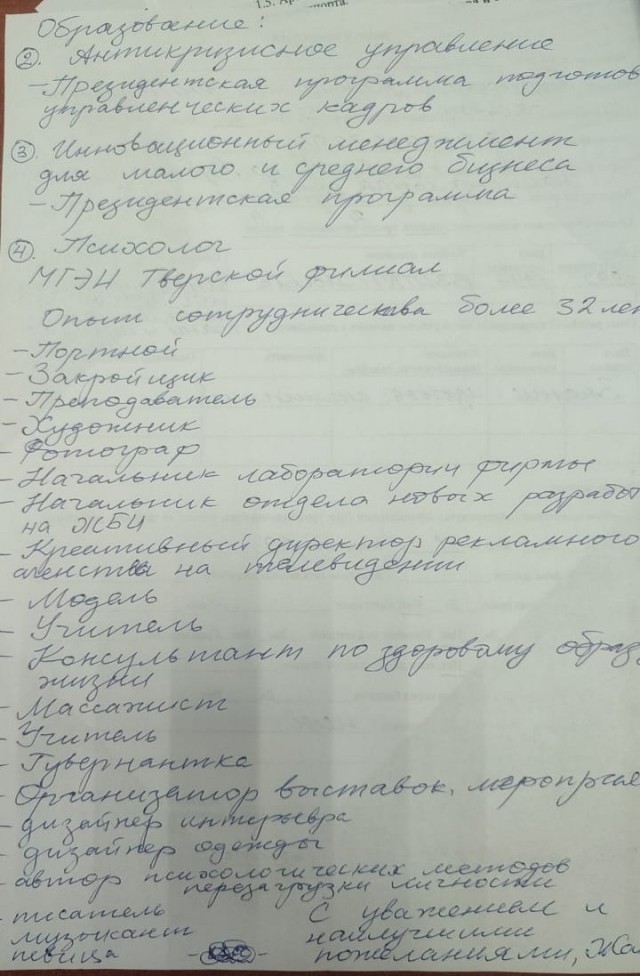 Образование:
②. Антикризисное управление
- Президентская программа подготов
управленческих кадров
③. Инновационный менеджмент
для малого и среднего бизнеса
- Президентская программа
④. Психолог
МГЭИ Тверской филиал
Опыт сотрудничества более 32 лет
- Портной
- Закройщик
- Преподаватель
- Художник
- Фотограф
- Начальник лаборатории фирмы
- Начальник отдела новых разрабо
на ЖБИ
- Креативный директор рекламного
агенства на телевидении
- Модель
- Учитель
- Консультант по здоровому образ
жизни
- Массажист
- Учитель
- Гувернантка
- Организатор выставок, меропрія
- дизайнер интерьера
- дизайнер одежды
- автор психологических методов
перезагрузки личности
- писатель
музыкант
певица
С уважением и
наилучшими
пожеланиями,